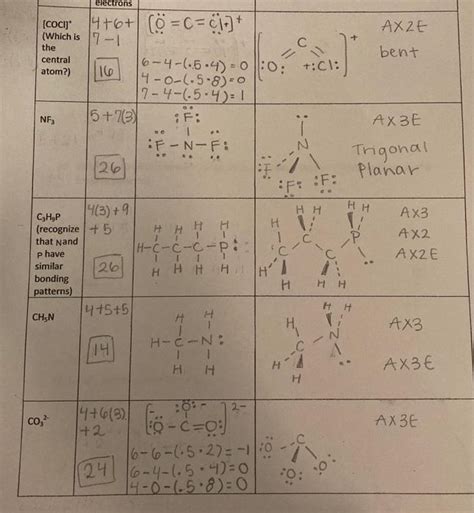 electrons
[COCl]⁺
(Which is
the
central
atom?)
4+6+
7-1
16
[:Ö=C=C̈l]⁺
6-4-(.5·4)=0
4-0-(.5·8)=0
7-4-(.5·4)=1
C
:O: +:Cl: +
AX2E
bent
NF₃
5+7(3)
26
:F:
:F-N-F:
N
:F: :F: :F:
AX3E
Trigonal
Planar
C₃H₉P
(recognize
that N and
P have
similar
bonding
patterns)
4(3)+9
+5
26
H H H H
H-C-C-C-P:
H H H H
H H H H
H P
C C C
H H H H
AX3
AX2
AX2E
CH₅N
4+5+5
14
H H
H-C-N:
H H
H H H
C N
H H
AX3
AX3E
CO₃²⁻
4+6(3)
+2
24
:O:
[:O-C=O:]²⁻
6-6-(.5·2)=-1
6-4-(.5·4)=0
4-0-(.5·8)=0
:O C
:O: :O:
AX3E